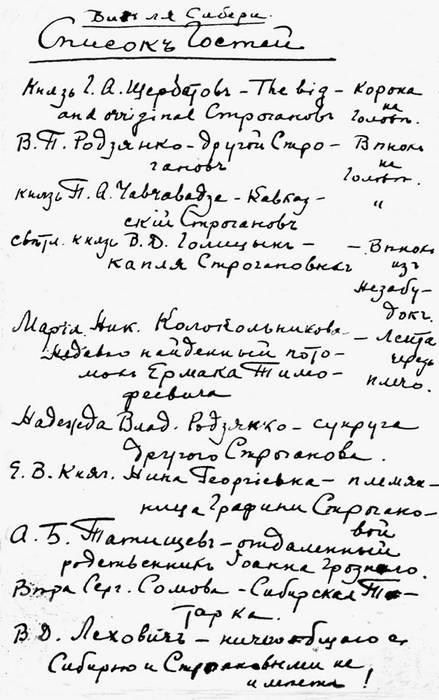 для Сибири.
Списокъ Гостей
Князь Г. А. Щербатовъ – The big – Корона
and original Строгановъ на
В. П. Родзянко – другой Стро- Вѣнокъ
гановъ на
князь П. А. Чавчавадзе – Кавказ- "
скій Строгановъ
свѣтл. князь В. Д. Голицынъ – – Вѣнокъ
капля Строгановыхъ изъ
незабу-
докъ.
Марія Ник. Колокольникова – Лента
Недавно найденный пото- черезъ
мокъ Ермака Тимо- плечо.
феевича
Надежда Влад. Родзянко – супруга
другого Строганова.
Е. В. Княг. Нина Георгіевна – племян-
ница Графини Строгано-
вой
А. Б. Татищевъ – отдаленный
родственникъ Іоанна Грознаго.
Вѣра Серг. Сомова – Сибирская Та-
тарка.
В. Д. Леховичъ – ничего общаго съ
Сибирью и Строгановыми не
имѣетъ!